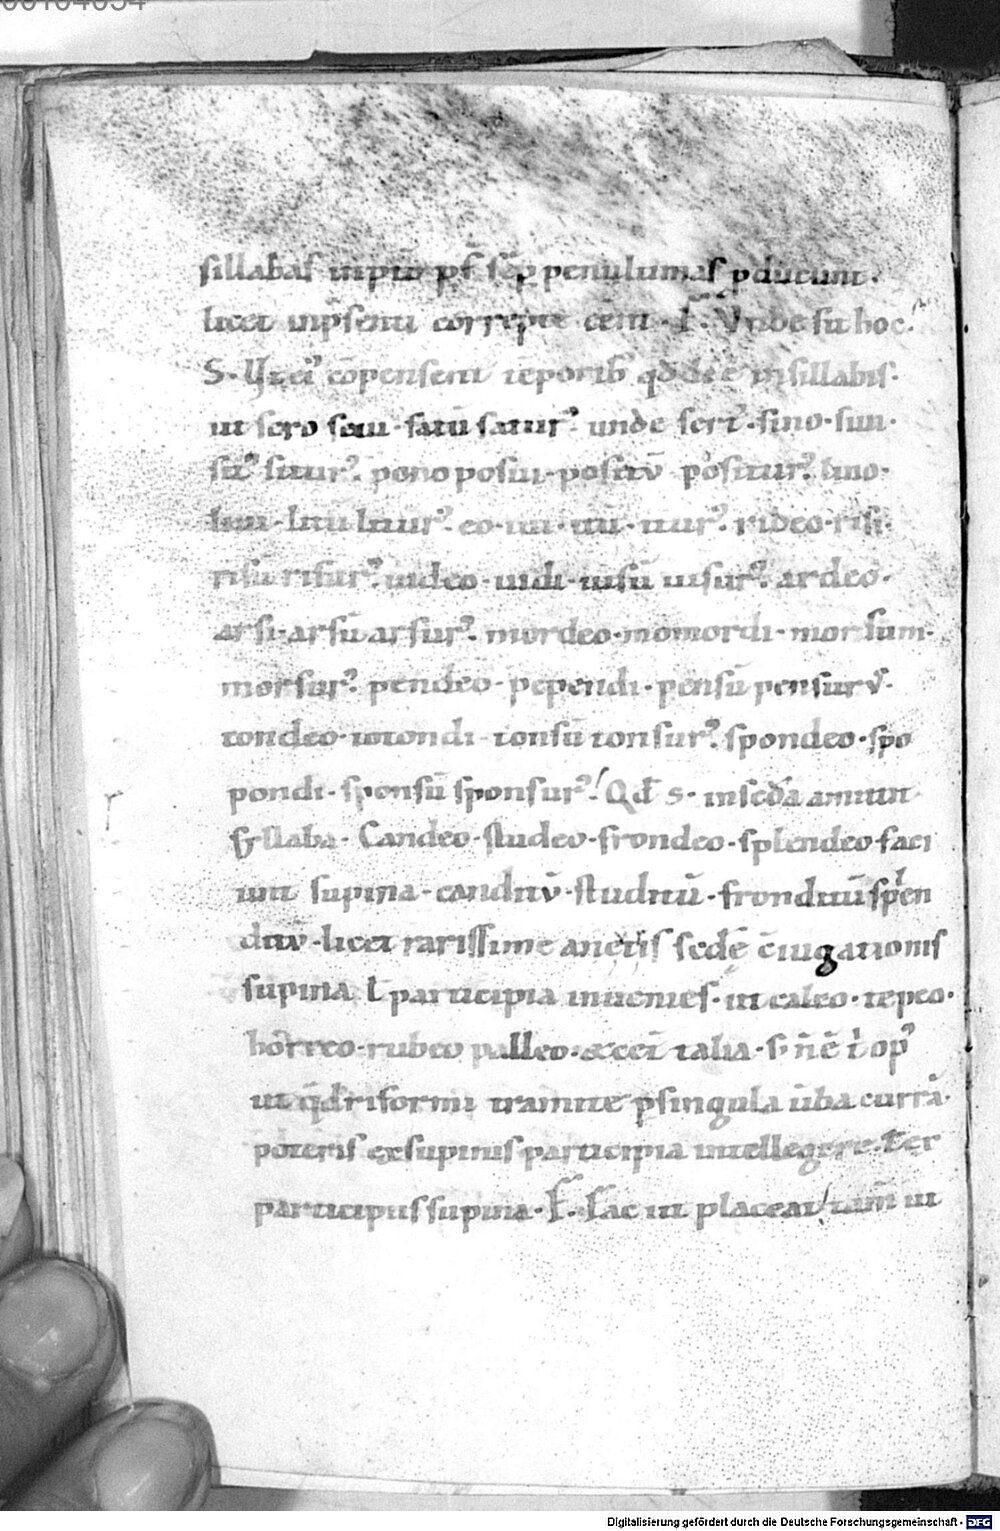 00104054
sillabas inpͥto pf̄ sēp penultimas ꝓducunt.
licet inp̄senti correpte eēnt. F. Vnde fit hoc.
S. Vt eī cōpensent tēporib qd dee in sillabis.
ut sero seui. satū saturꝰ. unde sertꝰ. sino. siui.
sitꝰ siturꝰ. pono posui. positū positurꝰ. lino.
liui. litū liturꝰ. eo. iui. itū. iturꝰ. rideo. risi.
risū risurꝰ. uideo. uidi. uisū uisurꝰ. ardeo.
arsi. arsū arsurꝰ. mordeo. momordi. morsum.
morsurꝰ. pendeo. pependi. pensū pensurꝰ.
tondeo. totondi. tonsū tonsurꝰ. spondeo. spo
pondi. sponsū sponsurꝰ. Qd s. in scda amittit
syllaba. Candeo. studeo. frondeo. splendeo. faci
unt supina. canditū. studitū. fronditū splen
ditū. licet rarissime anetis scdę ꝯiugationis
supina ł participia inuenies. ut caleo. tepeo.
horreo. rubeo palleo. & cet talia. s; n̄ ē ī opꝰ
ut qͣdriformi tramite ꝑ singula ūba currā.
poteris ex supinis participia intellegere. & er
participiis supina. F. Fac ut placeat. tam̄ ut
Digitalisierung gefördert durch die Deutsche Forschungsgemeinschaft - DFG